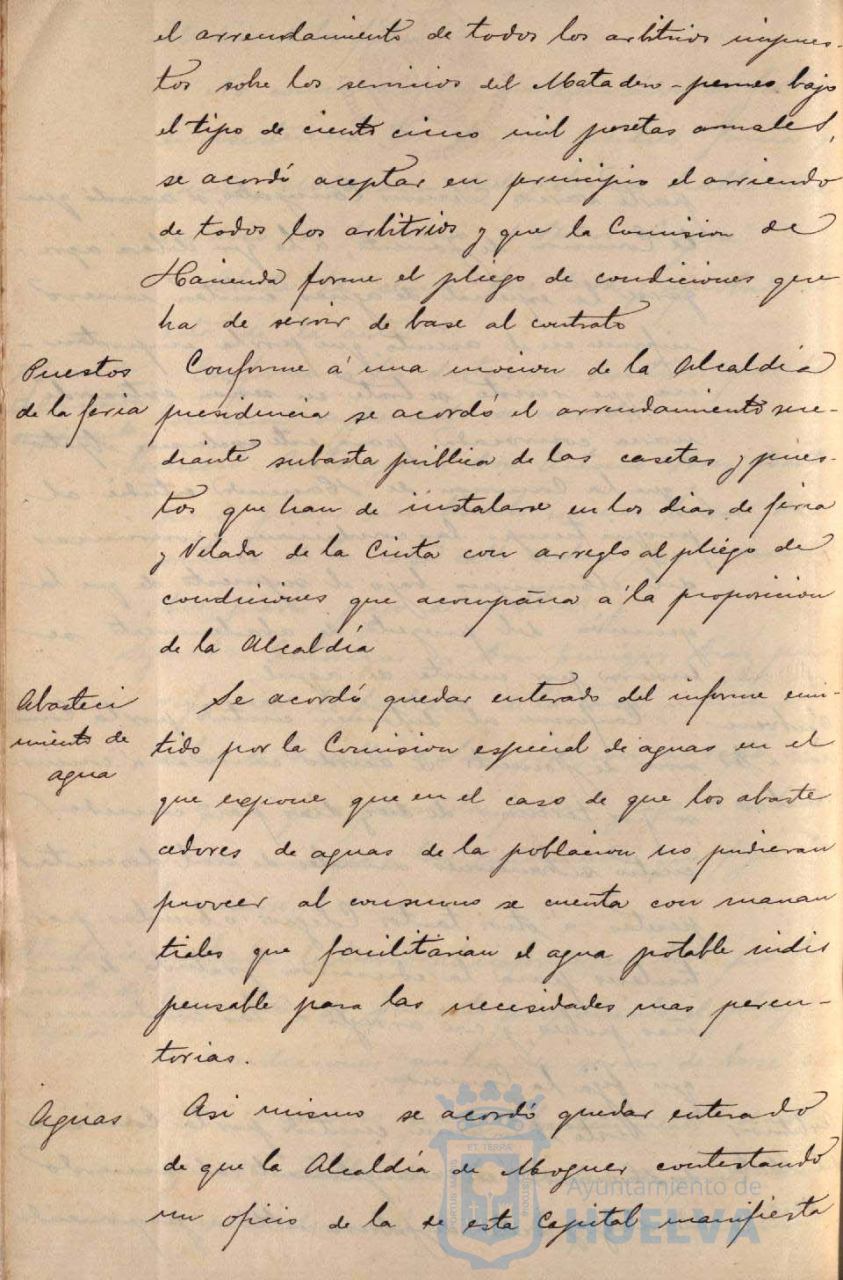 el arrendamiento de todos los arbitrios impues-
tos sobre los servicios del Matadero - bajo
el tipo de ciento cinco mil pesetas anuales,
se acordó aceptar en principio el arriendo
de todos los arbitrios y que la Comision de
Hacienda forme el pliego de condiciones que
ha de servir de base al contrato
Puestos
de la feria
Conforme á una mocion de la Alcaldia
presidencia se acordó el arrendamiento me-
diante subasta pública de las casetas y pues-
tos que han de instalarse en los dias de feria
y Velada de la Cinta con arreglo al pliego de
condiciones que acompaña á la proposicion
de la Alcaldía
Abasteci
miento de
agua
Se acordó quedar enterado del informe emi-
tido por la Comision especial de aguas en el
que expone que en el caso de que los abaste
cedores de aguas de la poblacion no pudieran
proveer al consumo se cuenta con manan
tiales que facilitarian el agua potable indis
pensable para las necesidades mas peren-
torias.
Aguas
Asi mismo se acordó quedar enterado
de que la Alcaldía de Moguer contestando
un oficio de la de esta Capital manifiesta
ET TERRA
PORTUS MARIS
CUSTODIA
Ayuntamiento de
HUELVA